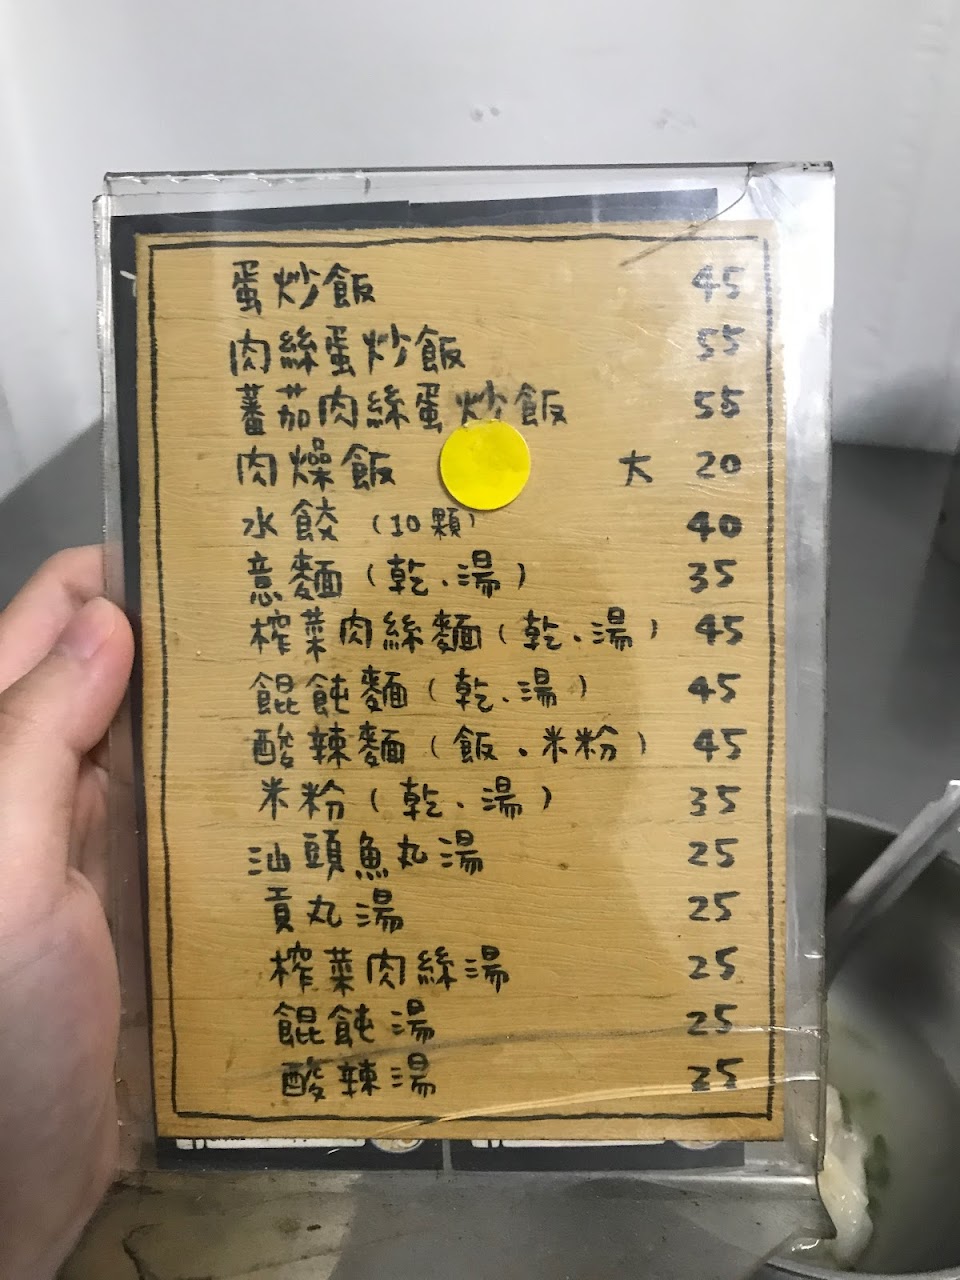 蛋炒飯 45
肉絲蛋炒飯 55
蕃茄肉絲蛋炒飯 55
肉燥飯 大 20
水餃(10顆) 40
意麵(乾、湯) 35
榨菜肉絲麵(乾、湯) 45
餛飩麵(乾、湯) 45
酸辣麵(飯、米粉) 45
米粉(乾、湯) 35
汕頭魚丸湯 25
貢丸湯 25
榨菜肉絲湯 25
餛飩湯 25
酸辣湯 25